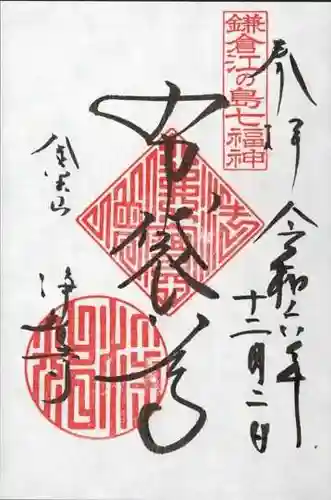 鎌倉江の島七福神
奉拝
令和六年
十二月二日
布袋尊
金宝山
浄智寺